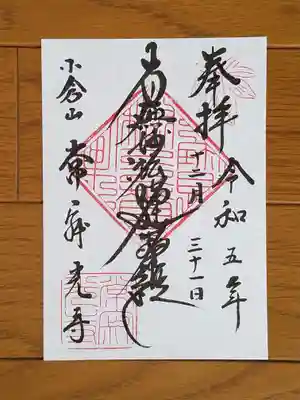 奉拝
令和五年
十二月
三十一日
南無妙法蓮華経
小倉山
常寂光寺